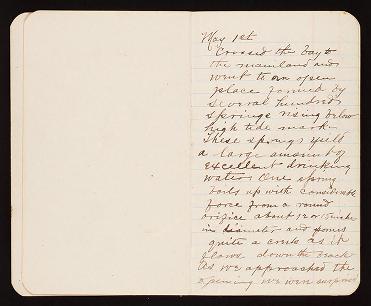 May 1st
Crossed the bay to
the mainland and
went to an open
place formed by
several hundred
springs rising below
high tide mark.
These springs yield
a large amount of
excellent drinking
water. One spring
boils up with considerable
force from a round
orifice about 12 or 15 inches
in diameter and forms
quite a creek as it
flows down the beach
As we approached the
opening we were surprised